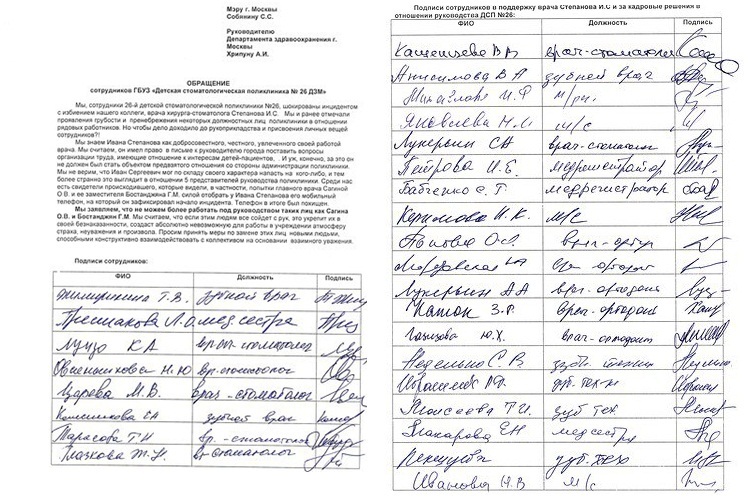 Мэру г. Москвы
Собянину С.С.
Руководителю
Департамента здравоохранения г.
Москвы
Хрипуну А.И.
ОБРАЩЕНИЕ
сотрудников ГБУЗ «Детская стоматологическая поликлиника № 26 ДЗМ»
Мы, сотрудники 26-й детской стоматологической поликлиники №26, шокированы инцидентом
с избиением нашего коллеги, врача хирурга-стоматолога Степанова И.С. Мы и ранее отмечали
проявления грубости и пренебрежения некоторых должностных лиц поликлиники в отношении
рядовых работников. Но чтобы дело доходило до рукоприкладства и присвоения личных вещей
сотрудников?!
Мы знаем Ивана Степанова как добросовестного, честного, увлеченного своей работой
врача. Мы считаем, он имел право в письме к руководителю города поставить вопросы
организации труда, имеющие отношение к интересам детей-пациентов, И уж, конечно, за это он
не должен был стать объектом предвзятого отношения со стороны администрации поликлиники.
Мы не верим, что Иван Сергеевич мог по складу своего характера напасть на кого-либо, и тем
более странно это выглядит в отношении 5 представителей руководства поликлиники. Среди нас
есть свидетели происходившего, которые видели, в частности, попытки главного врача Сагиной
О.В. и ее заместителя Бостанджяна Г.М. силой отобрать у Ивана Степанова его мобильный
телефон, на который он зафиксировал начало инцидента. Телефон в итоге был похищен.
Мы заявляем, что не можем более работать под руководством таких лиц как Сагина
О.В. и Бостанджян Г.М. Мы считаем, что если этим людям все сойдет с рук, это укрепит их в
своей безнаказанности, создаст абсолютно невозможную для работы в учреждении атмосферу
страха, неуважения и произвола. Просим принять меры по замене этих лиц новыми людьми,
способными конструктивно взаимодействовать с коллективом на основании взаимного уважения.
Подписи сотрудников:
ФИО Должность Подпись
Т.В. зубной врач
Л.О. медсестра
КА врач-стоматолог
Н.Ю врач-стоматолог
Царева М.В. врач-стоматолог
ЕА зубной врач
Тарасова Т.Н вр.-стоматолог
Глазкова Ж.Н. вр стоматолог
Подписи сотрудников в поддержку врача Степанова И.С и за кадровые решения в
отношении руководства ДСП №26:
ФИО Должность Подпись
В.В. врач-стоматолог
Анисимова В А зубной врач
И.Ф
Яковлева Н.И. м/с
Лукерьин СА врач-стоматолог
Петрова И.Е. медрегистратор
Бабченко Е.Т. медрегистратор
Керимова И.К. м/с
О.О. врач-ортод
врач ортодонт
Лукерьин АА врач-ортодонт
З.Р. врач-ортодонт
Ю.Х. врач-ортодонт
Неделько С.В. зубн. техник
зуб. техн
Моисеева Т.И. зуб тех
Макарова ЕН медсестра
зуб. тех
Иванова Н.В м/с